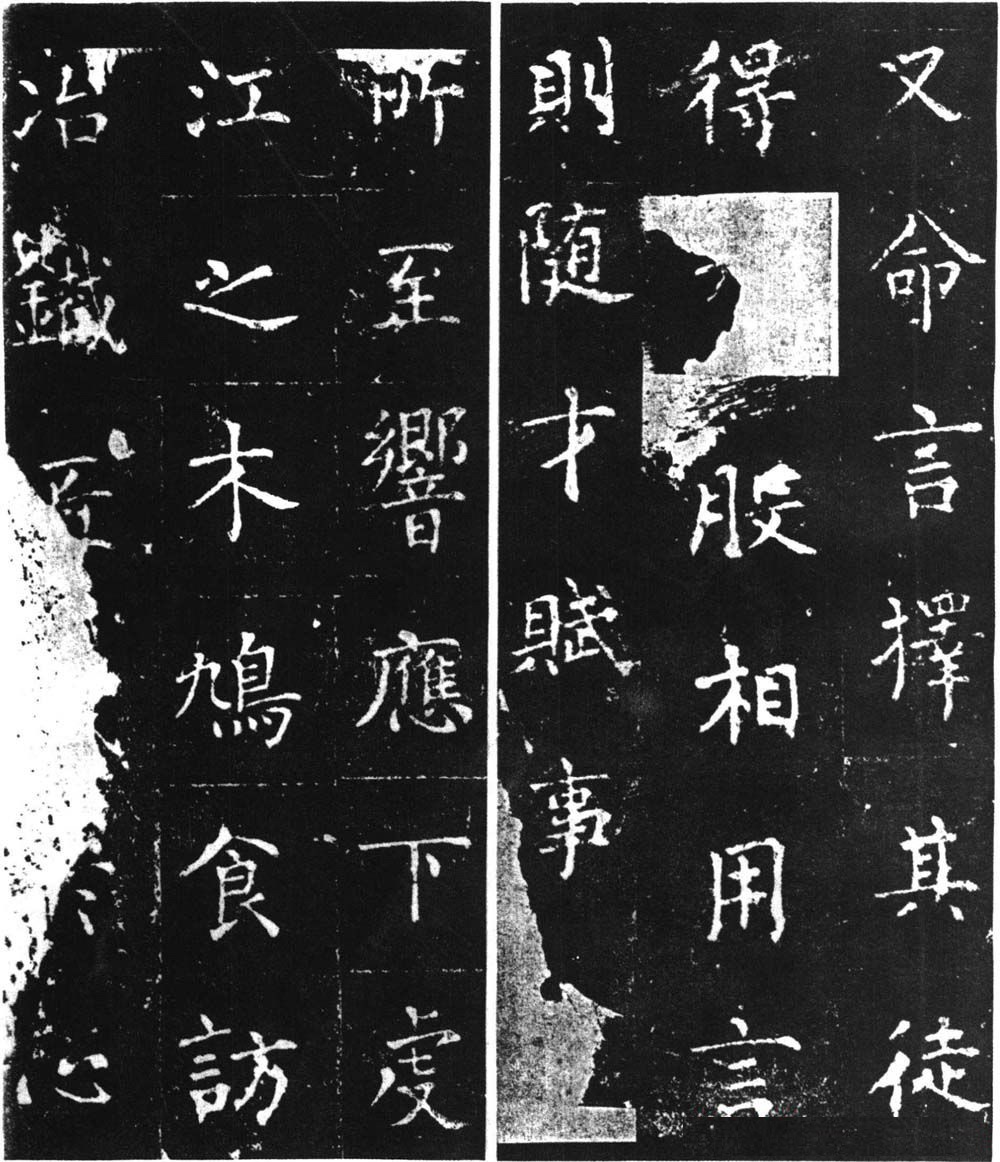 又命言擇其徒
得股相用言
則隨才賦事
所至響應下虔
江之木鳩食訪
冶鐵
心